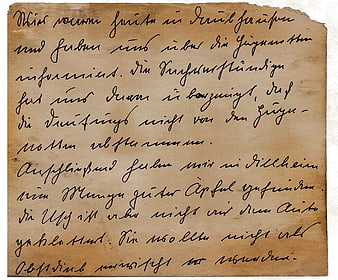 Wir waren heute in Daubhausen
und haben uns über die Hugenotten
informiert. Die Sachverständige
hat uns davon überzeugt, daß
die Dentungs nicht von den Huge-
notten abstammen.
Anschließend haben wir in Dillheim
eine Menge guter Äpfel gefunden.
die Usch ist aber nicht auf dem Auto
geklettert. Sie wollte nicht als
Obstdieb erwischt werden.